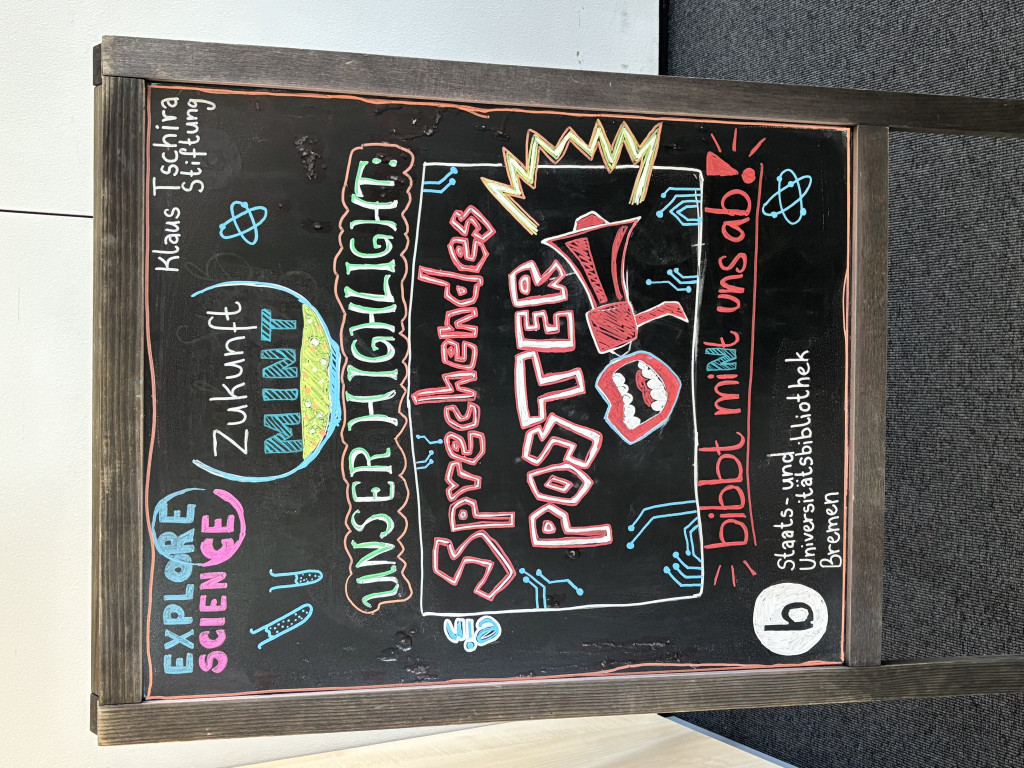 EXPLORE
SCIENCE
Klaus Tschira
Stiftung
Zukunft
MINT
UNSER HIGHLIGHT:
Ein
Sprechendes
POSTER
bibbt miNt uns ab!
b
Staats- und
Universitätsbibliothek
Bremen